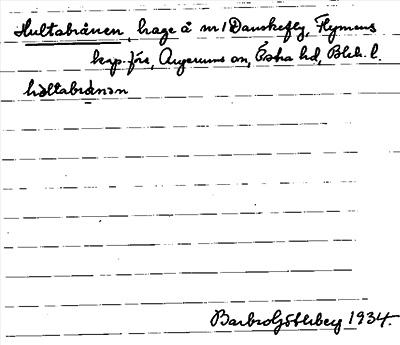 Hultabrånen, hage å nr 1 Danskefly, Flymens
kap. förs, Augerums sn, Östra hd, Blek. l.
hɵltabrånən
Barbro Götlberg 1934.